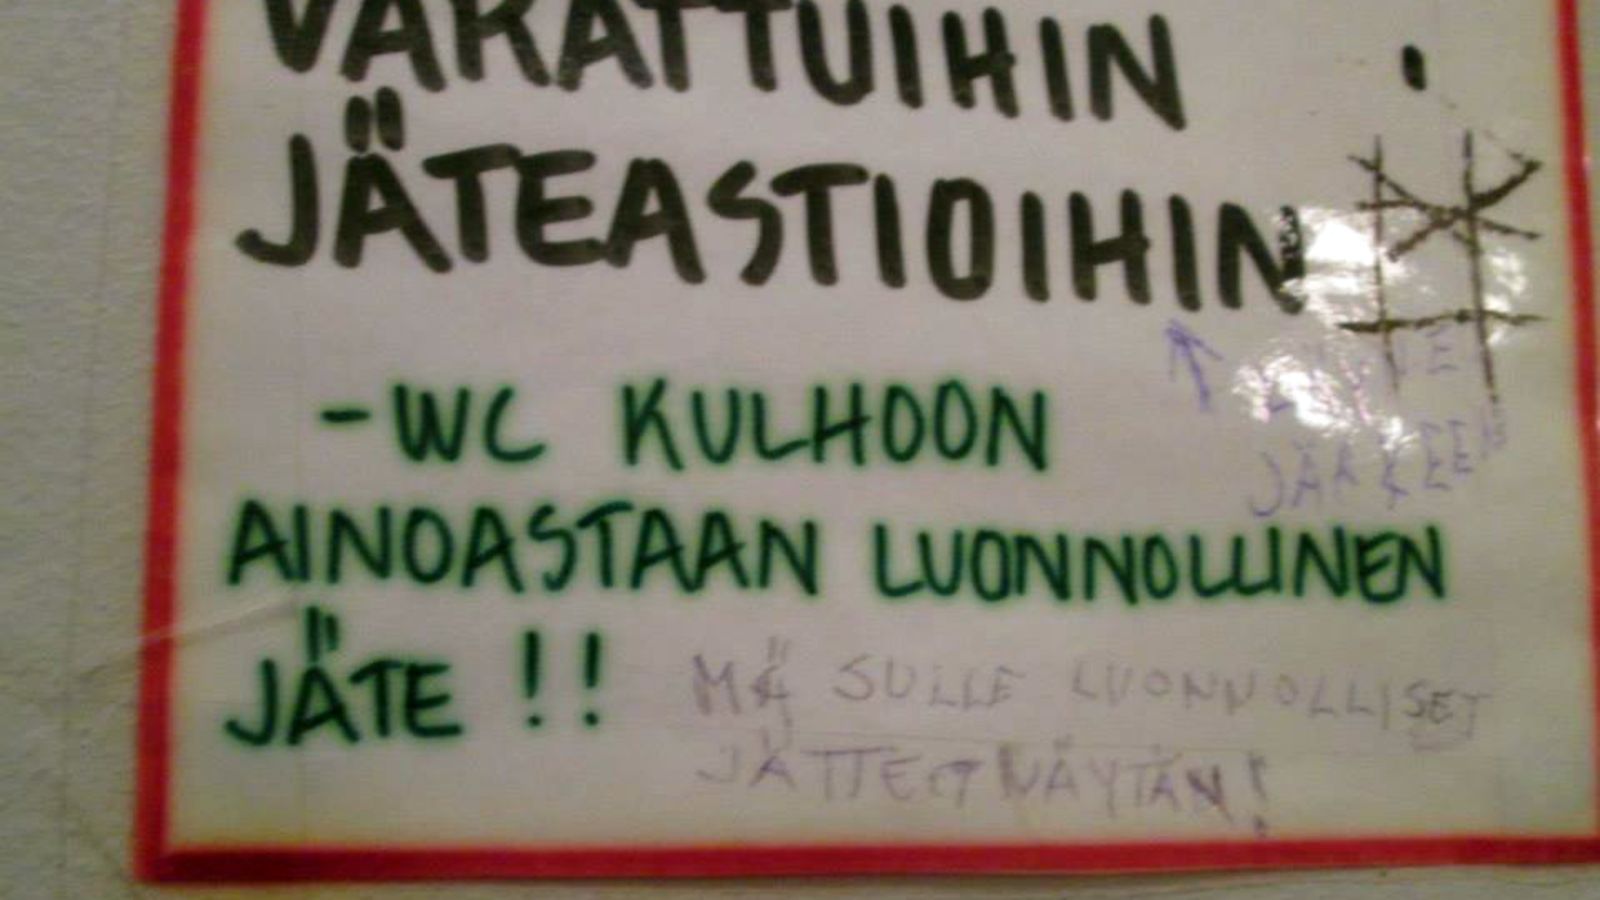 VARATTUIHIN
JÄTEASTIOIHIN
-WC KULHOON
JÄRKEEN
AINOASTAAN LUONNOLLINEN
JÄTE !!
MÄ SULLE LUONNOLLISET
JÄTTEET NÄYTÄN!